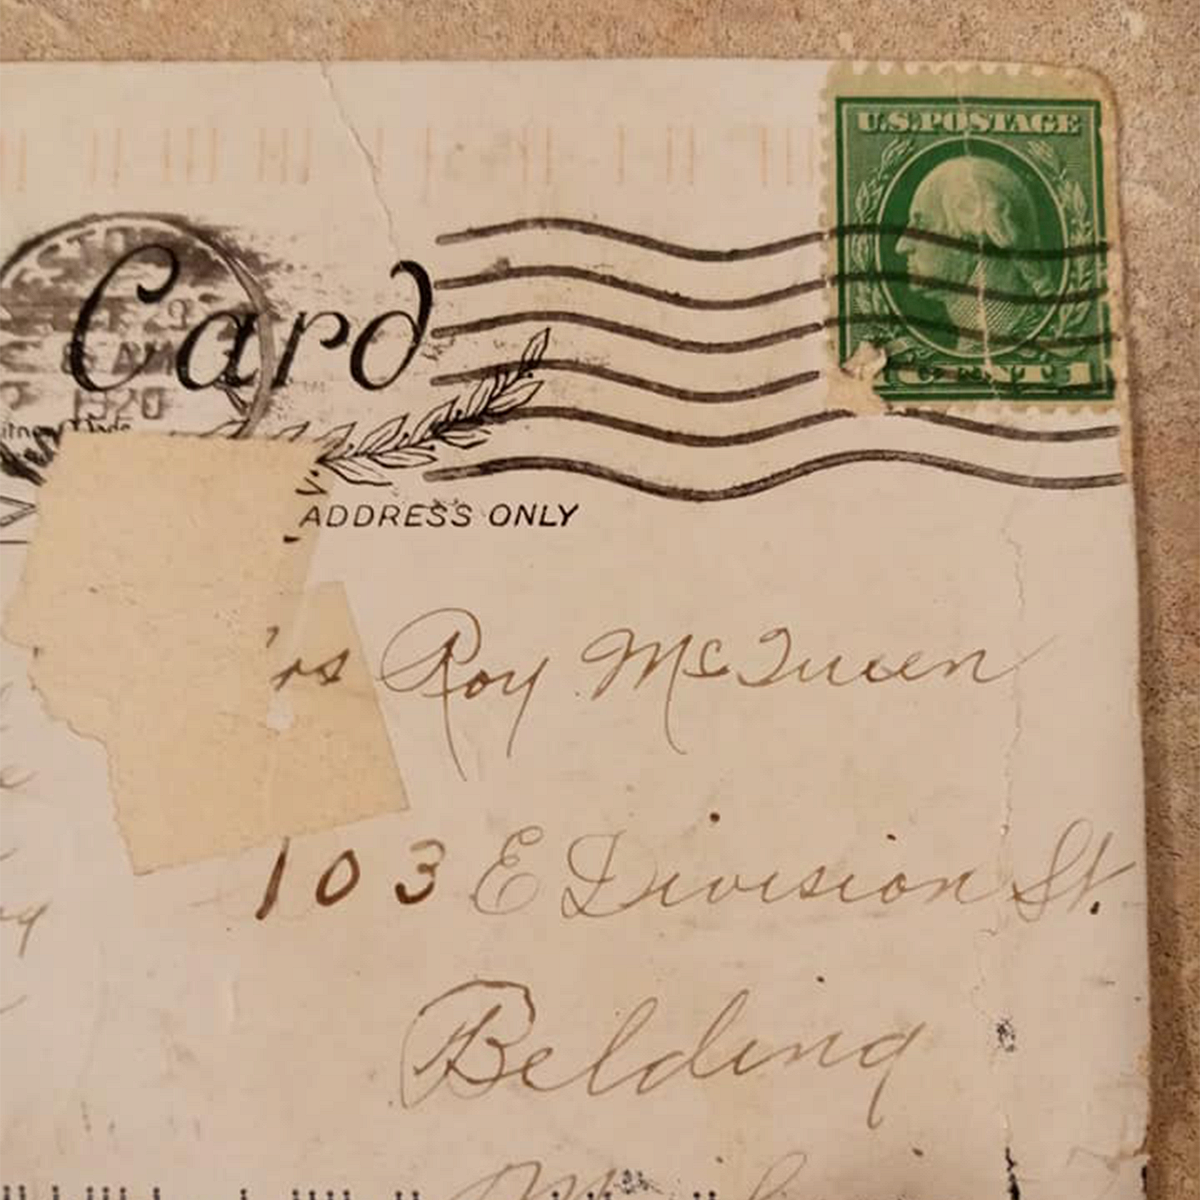 U.S. POSTAGE
Card
29
8 AM
1920
ADDRESS ONLY
rs Roy McQueen
103 E Division St.
Belding